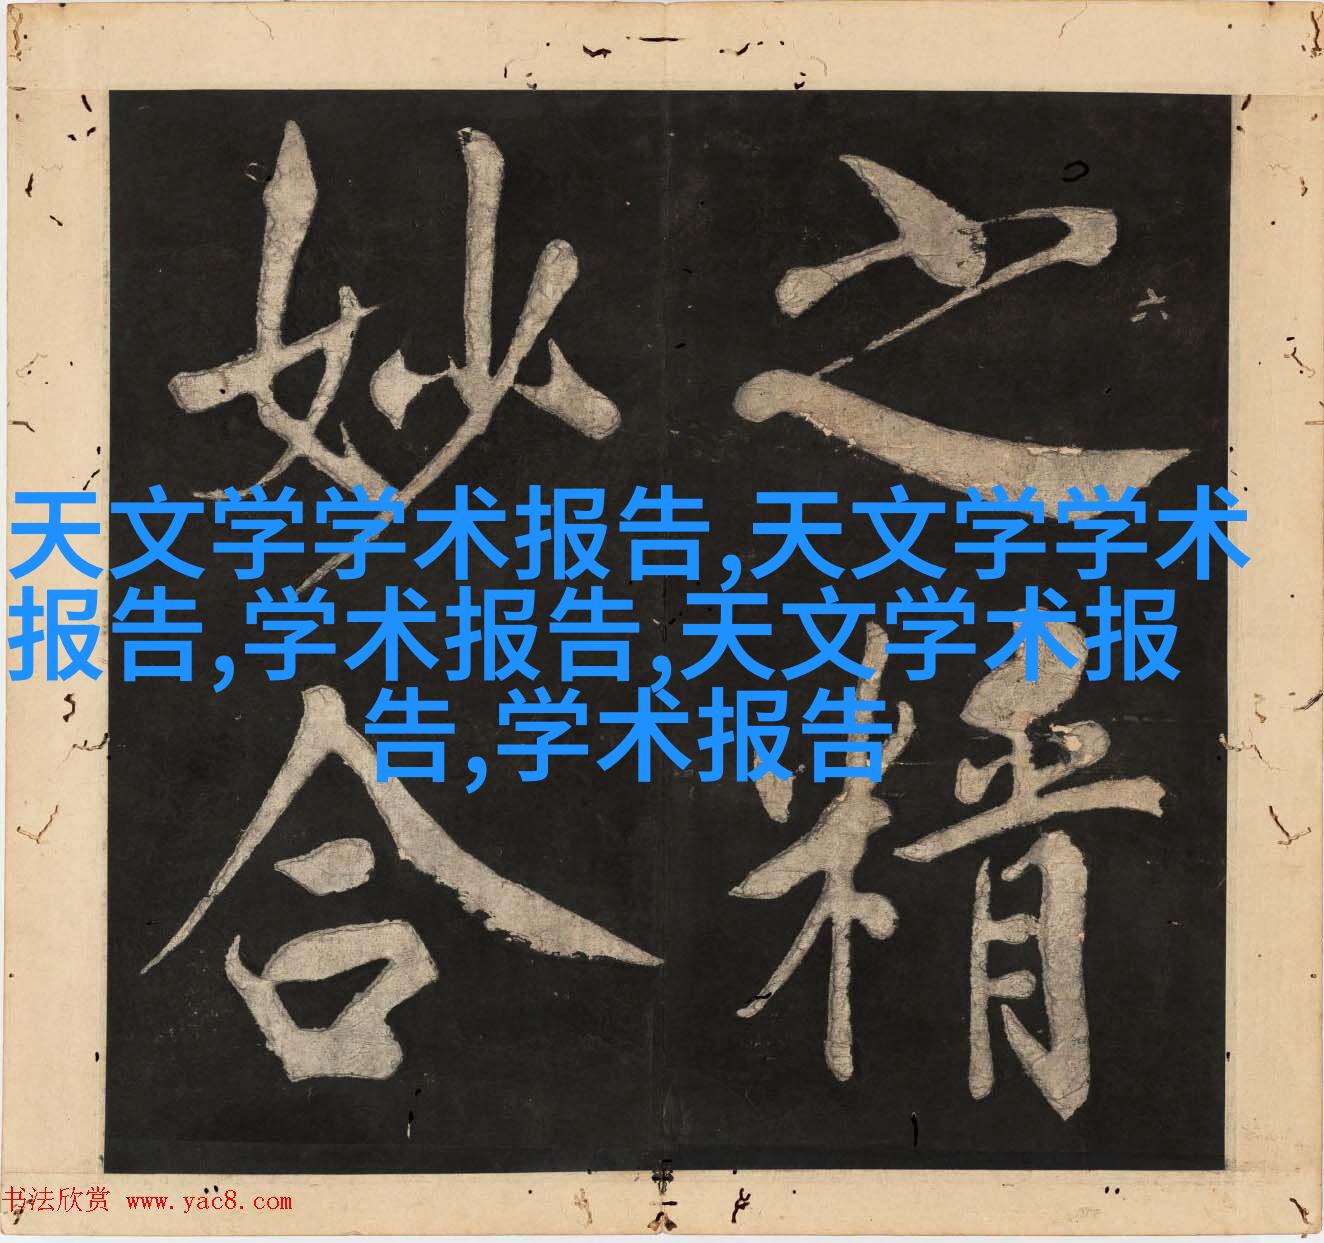 之精
妙合
六
天文学学术报告,天文学学术
报告,学术报告,天文学术报
告,学术报告
书法欣赏 www.yac8.com